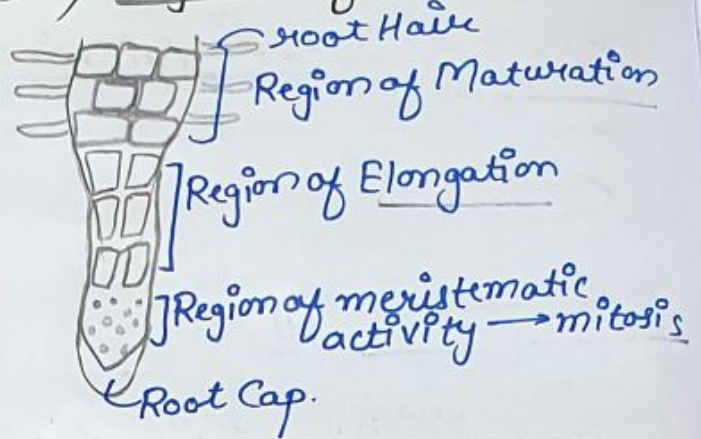 root Hair
Region of Maturation
Region of Elongation
Region of meristematic
activity → mitosis
Root Cap.